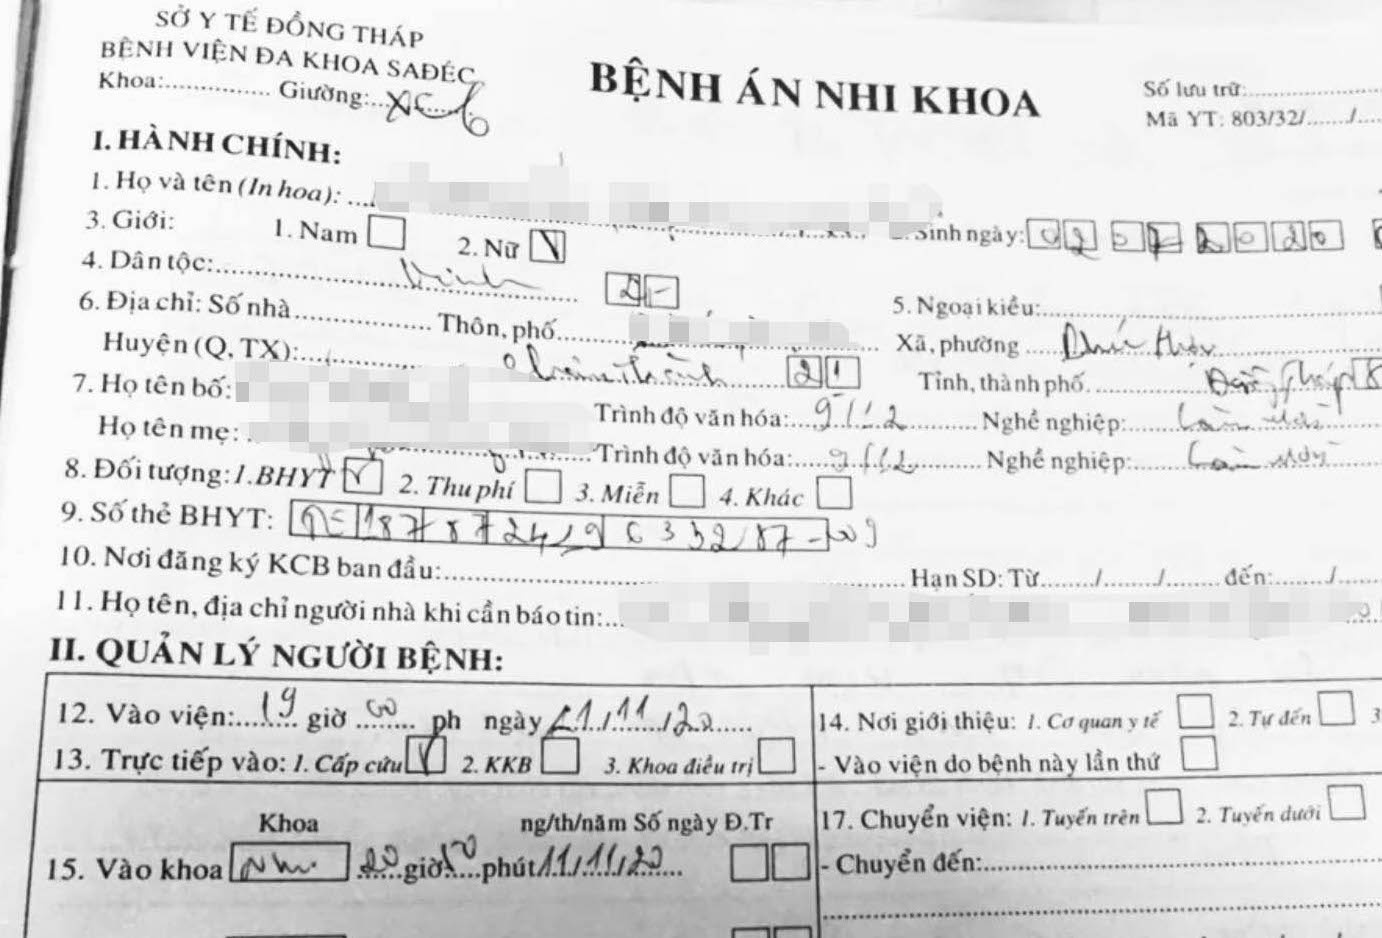 SỞ Y TẾ ĐỒNG THÁP
BỆNH VIỆN ĐA KHOA SAĐÉC
Khoa:............... Giường:...
BỆNH ÁN NHI KHOA
Số lưu trữ:...............
Mã YT: 803/32/......./....
I. HÀNH CHÍNH:
1. Họ và tên (In hoa): ....
Sinh ngày: 02 07 2020
3. Giới: 1. Nam 2. Nữ
4. Dân tộc:...............
5. Ngoại kiều:...............
6. Địa chỉ: Số nhà............... Thôn, phố............... Xã, phường ...............
Huyện (Q, TX):............... Châu Thành 21 Tỉnh, thành phố............... Đồng Tháp
7. Họ tên bố: Trình độ văn hóa:...9/12 Nghề nghiệp:...
Họ tên mẹ: Trình độ văn hóa:...9/12 Nghề nghiệp:...
8. Đối tượng: 1. BHYT 2. Thu phí 3. Miễn 4. Khác
9. Số thẻ BHYT:
10. Nơi đăng ký KCB ban đầu:............... Hạn SD: Từ......./......./....... đến:......./....
11. Họ tên, địa chỉ người nhà khi cần báo tin:...
II. QUẢN LÝ NGƯỜI BỆNH:
12. Vào viện: 19 giờ 00 ph ngày 11/11/20
13. Trực tiếp vào: 1. Cấp cứu 2. KKB 3. Khoa điều trị
14. Nơi giới thiệu: 1. Cơ quan y tế 2. Tự đến 3
- Vào viện do bệnh này lần thứ
Khoa ng/th/năm Số ngày Đ.Tr
15. Vào khoa Nhi 20 giờ 10 phút 11/11/20
17. Chuyển viện: 1. Tuyến trên 2. Tuyến dưới
- Chuyển đến:...............